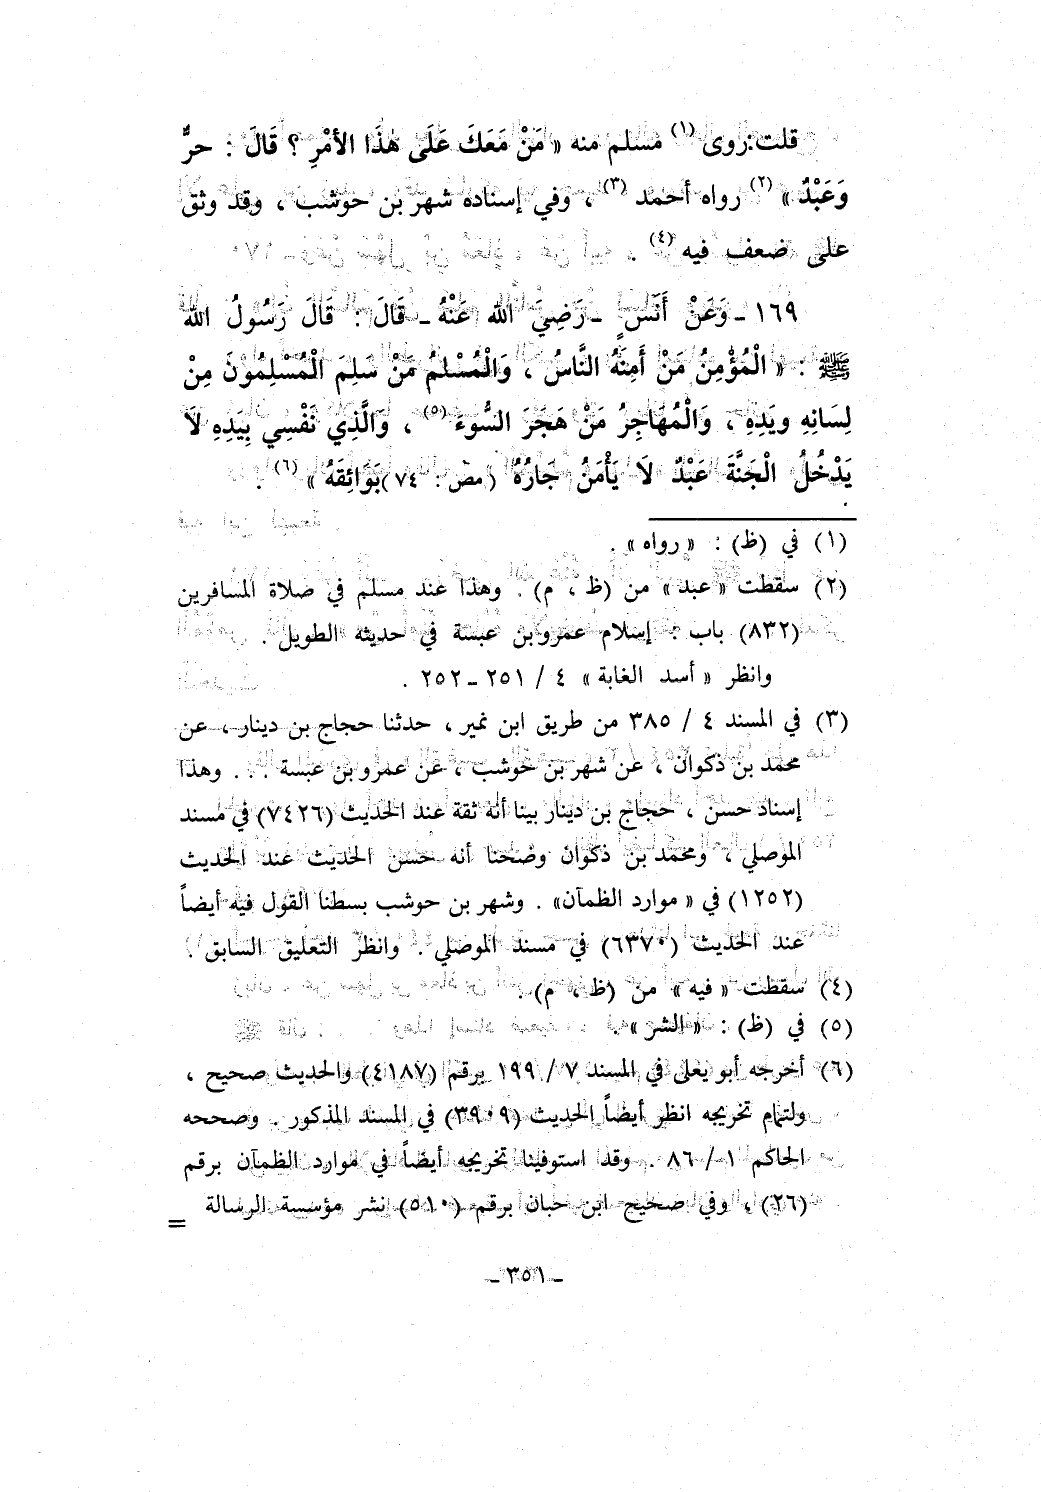 قلت: روى (١) مسلم منه « مَنْ مَعَكَ عَلَى هٰذَا الأمْرِ ؟ قَالَ : حرٌّ
وَعَبْدٌ » (٢) رواه أحمد (٣) ، وفي إسناده شهر بن حوشب ، وقد وثق
على ضعف فيه (٤) .
١٦٩ ـ وَعَنْ أَنَسٍ ـ رَضِيَ اللّه عَنْهُ ـ قَالَ : قَالَ رَسُولُ اللّه
ﷺ : « الْمُؤْمِنُ مَنْ أَمِنَهُ النَّاسُ ، وَالْمُسْلِمُ مَنْ سَلِمَ الْمُسْلِمُونَ مِنْ
لِسَانِهِ ويَدِهِ ، وَالْمُهَاجِرُ مَنْ هَجَرَ السُّوءَ (٥) ، وَالَّذِي نَفْسِي بِيَدِهِ لَا
يَدْخُلُ الْجَنَّةَ عَبْدٌ لَا يَأْمَنُ جَارُهُ (مص : ٧٤) بَوَائِقَهُ » (٦) .
(١) في (ظ) : « رواه » .
(٢) سقطت « عبد » من (ظ ، م) . وهذا عند مسلم في صلاة المسافرين
(٨٣٢) باب : إسلام عمرو بن عبسة في حديثه الطويل .
وانظر « أسد الغابة » ٤ / ٢٥١ ـ ٢٥٢ .
(٣) في المسند ٤ / ٣٨٥ من طريق ابن نمير ، حدثنا حجاج بن دينار ، عن
محمد بن ذكوان ، عن شهر بن حوشب ، عن عمرو بن عبسة . . . وهذا
إسناد حسن ، حجاج بن دينار بينا أنه ثقة عند الحديث (٧٤٢٦) في مسند
الموصلي ، ومحمد بن ذكوان وضحنا أنه حسن الحديث عند الحديث
(١٢٥٢) في « موارد الظمآن» . وشهر بن حوشب بسطنا القول فيه أيضاً
عند الحديث (٦٣٧٠) في مسند الموصلي . وانظر التعليق السابق .
(٤) سقطت « فيه » من (ظ ، م) .
(٥) في (ظ) : « الشر » .
(٦) أخرجه أبو يعلى في المسند ٧ / ١٩٩ برقم (٤١٨٧) والحديث صحيح ،
ولتمام تخريجه انظر أيضاً الحديث (٣٩٠٩) في المسند المذكور . وصححه
الحاكم ١ / ٨٦ . وقد استوفينا تخريجه أيضاً في موارد الظمآن برقم
(٢٦) ، وفي صحيح ابن حبان برقم (٥١٠) نشر مؤسسة الرسالة =
ـ ٣٥١ ـ